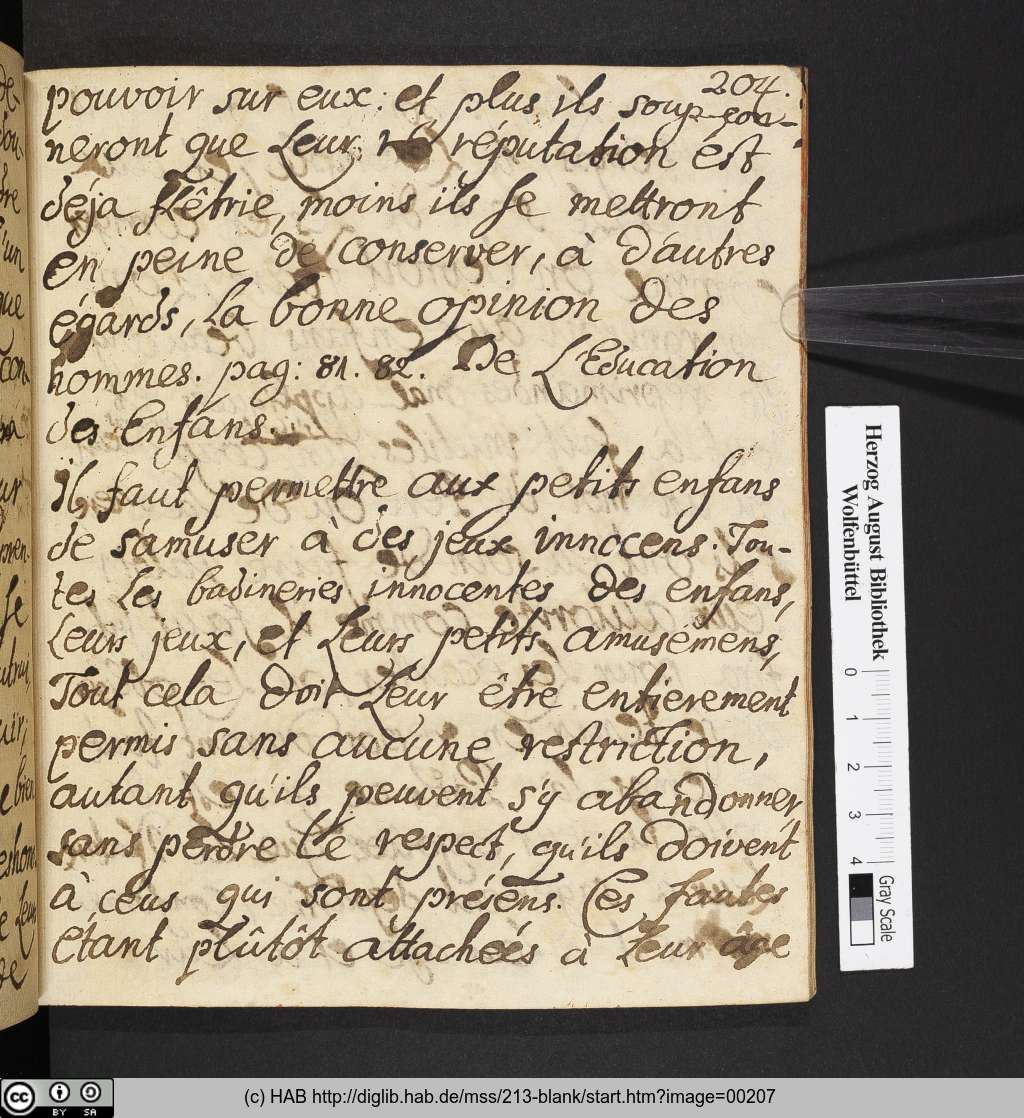 204.
pouvoir sur eux: et plus ils soupçon-
neront que Leur ré réputation ést
déja flêtrie, moins ils se mettront
en peine de conserver, à d'autres
égards, la bonne opinion des
hommes. pag: 81. 82. De L'Education
des Enfans.
Il faut permettre aux petits enfans
de s'amuser à des jeux innocens. Tou-
tes Les badineries innocentes des enfans,
Leurs jeux, et Leurs petits amusémens,
Tout cela doit Leur être entierement
permis sans aucune restriction,
autant qu'ils peuvent s'y abandonner,
sans perdre Le respect, qu'ils doivent
à ceus qui sont présens. Ces fautes
étant plûtôt attacheés à Leur âge
Herzog August Bibliothek
Wolfenbüttel
0 1 2 3 4
Gray Scale
(c) HAB http://diglib.hab.de/mss/213-blank/start.htm?image=00207
cc BY SA